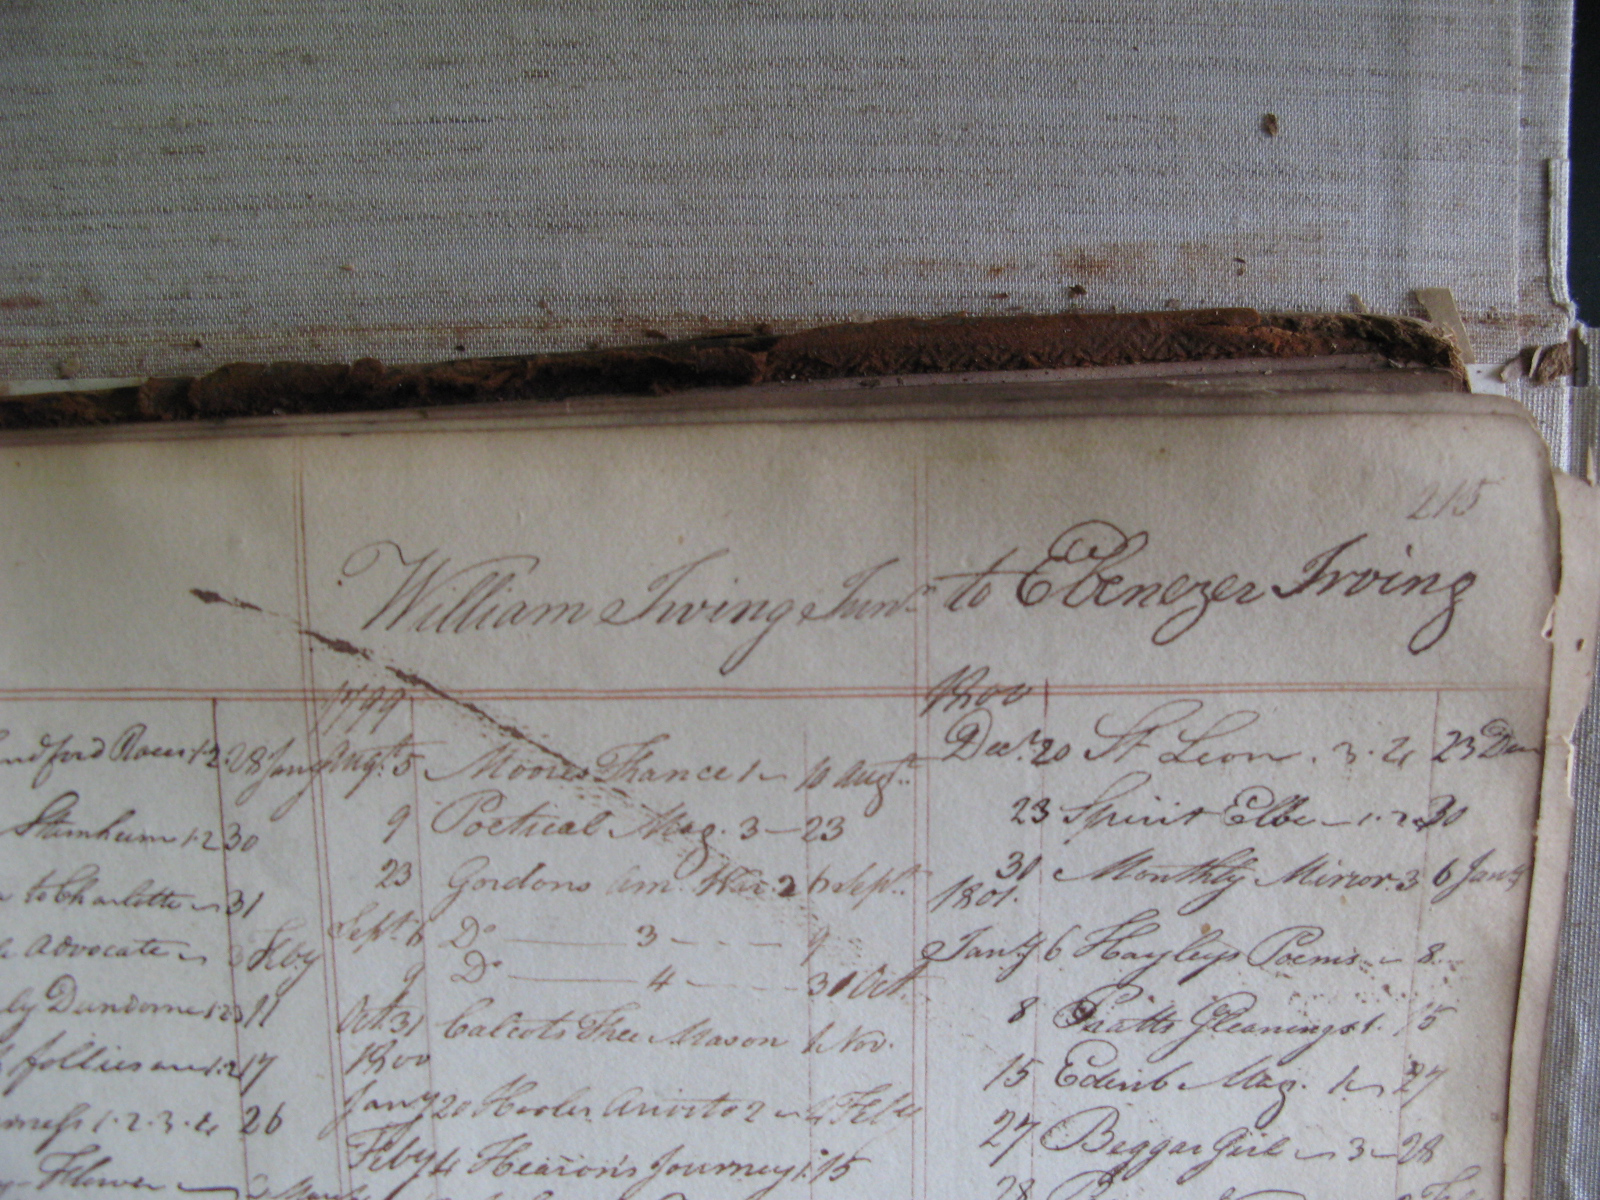 215
William Irving Junr to Ebenezer Irving
ndford Races 1-2 28 Jany
Sternheim 1-2 30
to Charlotte 31
Advocate 3 Feby
ly Dundorne 1 2 3 11
follies 1.2 17
1-2-3-4 26
Flower
1799
Augt 5 Moores France 1 10 Augt
9 Poetical Mag. 3 — 23
23 Gordons Am. War. 2 6 Sept
Sept 6 Do — 3 - - - 9
9 Do — 4 - - - 31 Oct
Oct 31 Calcots Thee Mason 1 Nov.
1800
Jany 20 Hooles Ariosto 2 4 Feby
Feby 4 Hearons Journey 1. 15
1800
Decr 20 St Leon. 3. 4 23 Decr
23 Spirit Elbe — 1. 2 30
31 Monthly Mirror 3 6 Jany
1801.
Jany 6 Hayleys Poems 8
8 Pratts Gleanings 1. 15
15 Edinb Mag. 1 27
27 Beggar Girl 3 28
28